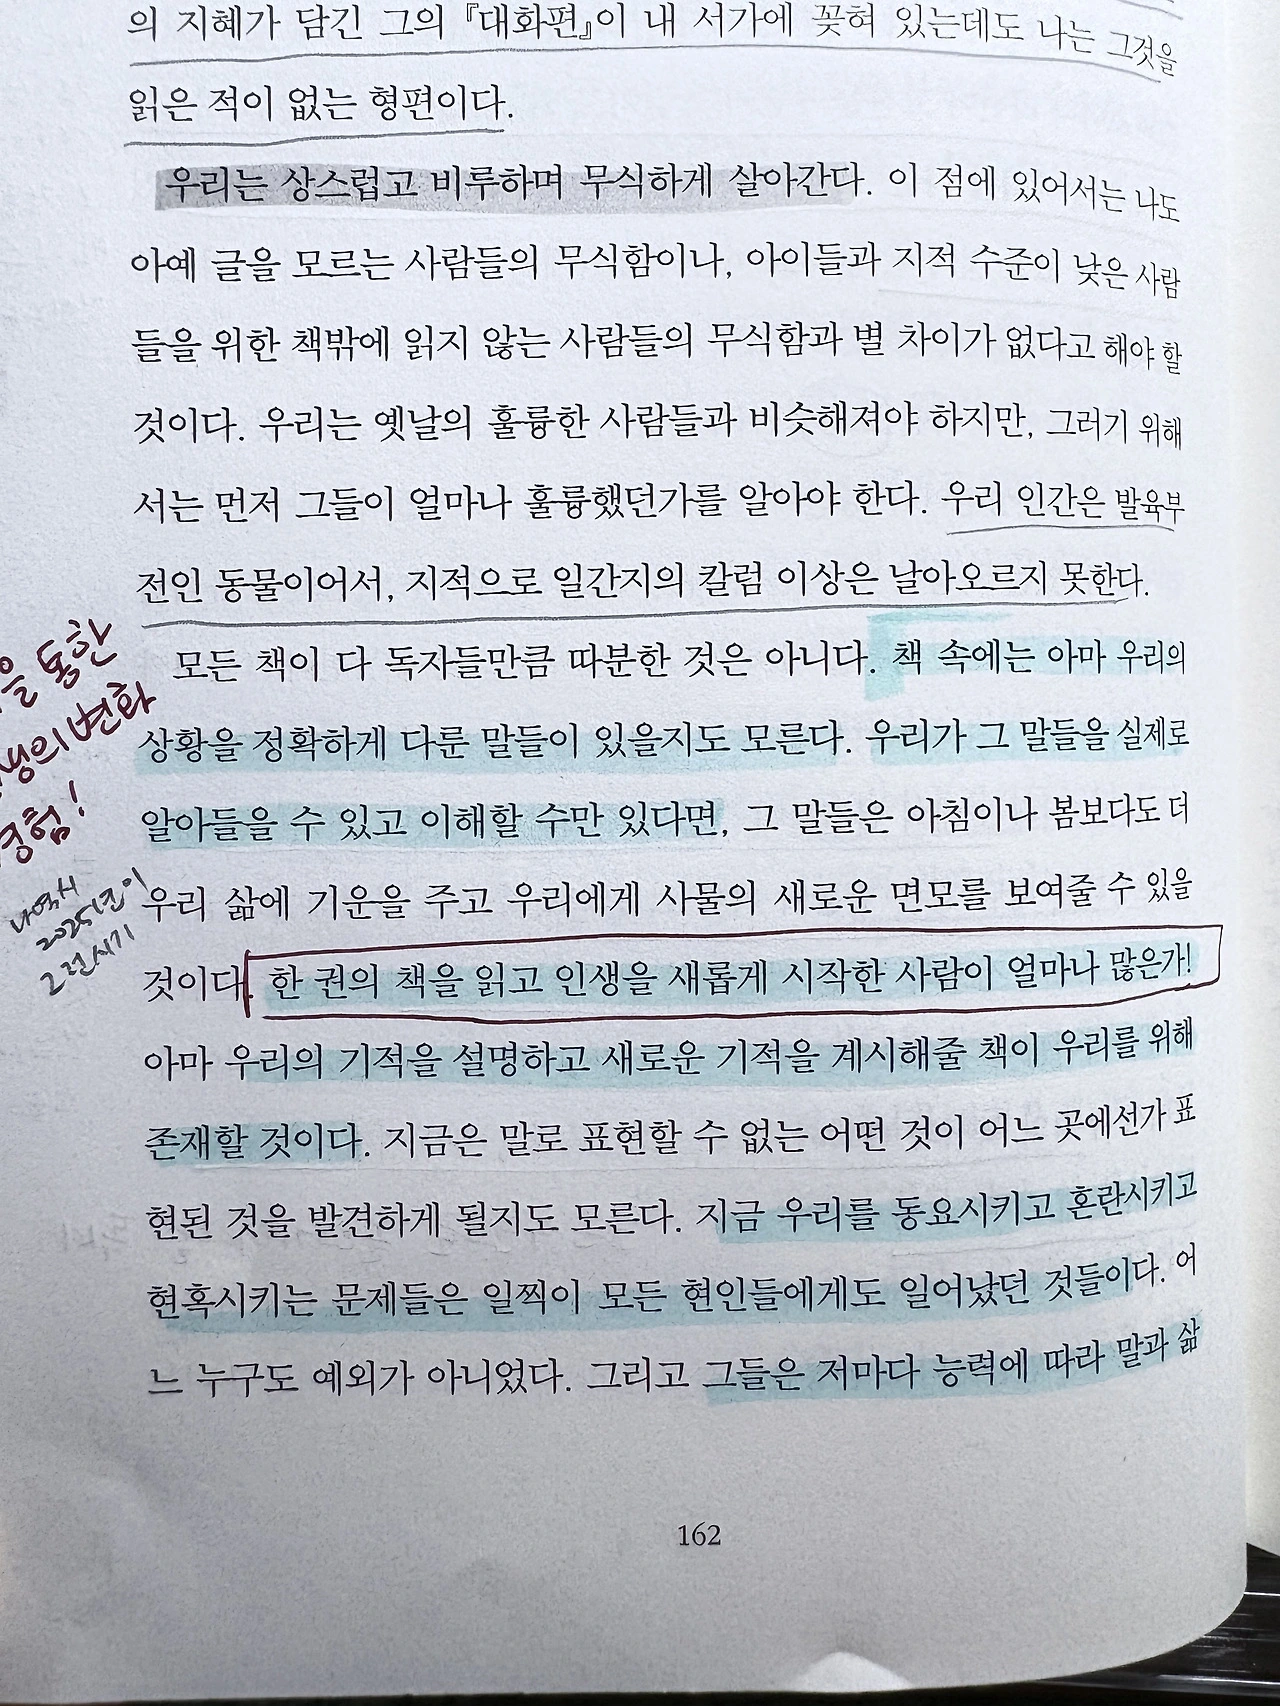 의 지혜가 담긴 그의 『대화편』이 내 서가에 꽂혀 있는데도 나는 그것을
읽은 적이 없는 형편이다.
우리는 상스럽고 비루하며 무식하게 살아간다. 이 점에 있어서는 나도
아예 글을 모르는 사람들의 무식함이나, 아이들과 지적 수준이 낮은 사람
들을 위한 책밖에 읽지 않는 사람들의 무식함과 별 차이가 없다고 해야 할
것이다. 우리는 옛날의 훌륭한 사람들과 비슷해져야 하지만, 그러기 위해
서는 먼저 그들이 얼마나 훌륭했던가를 알아야 한다. 우리 인간은 발육부
전인 동물이어서, 지적으로 일간지의 칼럼 이상은 날아오르지 못한다.
모든 책이 다 독자들만큼 따분한 것은 아니다. 책 속에는 아마 우리의
상황을 정확하게 다룬 말들이 있을지도 모른다. 우리가 그 말들을 실제로
알아들을 수 있고 이해할 수만 있다면, 그 말들은 아침이나 봄보다도 더
우리 삶에 기운을 주고 우리에게 사물의 새로운 면모를 보여줄 수 있을
것이다. 한 권의 책을 읽고 인생을 새롭게 시작한 사람이 얼마나 많은가!
아마 우리의 기적을 설명하고 새로운 기적을 계시해줄 책이 우리를 위해
존재할 것이다. 지금은 말로 표현할 수 없는 어떤 것이 어느 곳에선가 표
현된 것을 발견하게 될지도 모른다. 지금 우리를 동요시키고 혼란시키고
현혹시키는 문제들은 일찍이 모든 현인들에게도 일어났던 것들이다. 어
느 누구도 예외가 아니었다. 그리고 그들은 저마다 능력에 따라 말과 삶
을 통한
생의 변화
경험!
나 역시
2025년이
그런 시기
162